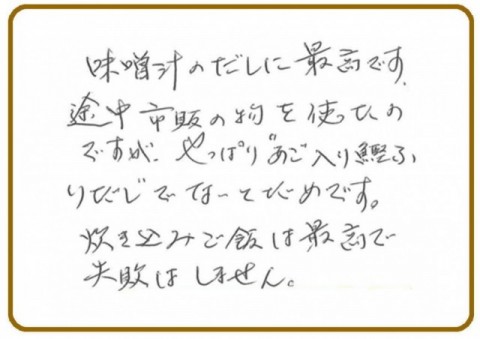 味噌汁のだしに最高です.
途中市販の物を使ったの
ですが、やっぱり"あご入り鰹ふ
りだし"でないとだめです。
炊き込みご飯は最高で
失敗はしません。